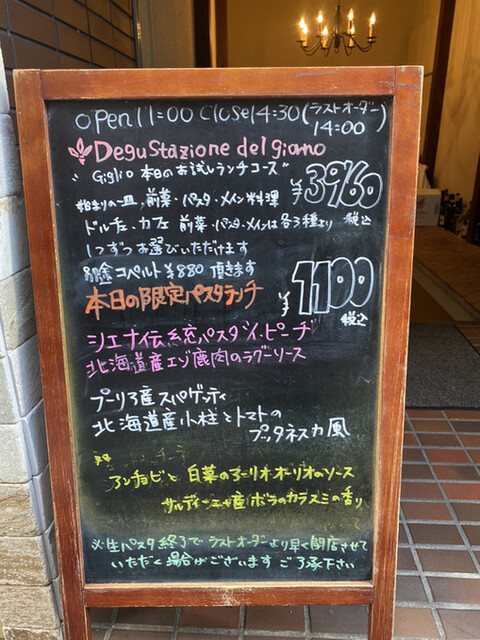 open 11:00 close 14:30 (ラストオーダー 14:00)
Degustazione del giorno
"Giglio 本日のお試しランチコース"
¥3960 税込
始まりの一皿、前菜・パスタ・メイン料理
ドルチェ、カフェ 前菜・パスタ・メインは各3種より
1つずつお選びいただけます
別途コペルト¥880 頂きます
本日の限定パスタランチ
¥1100 税込
シエナ伝統パスタ"イ・ピーチ"
北海道産エゾ鹿肉のラグーソース
プーリア産スパゲッティ
北海道産小柱とトマトの
プッタネスカ風
アンチョビと白菜のアーリオオーリオのソース
サルディーニャ産ボラのカラスミの香り
※生パスタ終了でラストオーダーより早く閉店させて
いただく場合がございます ご了承下さい